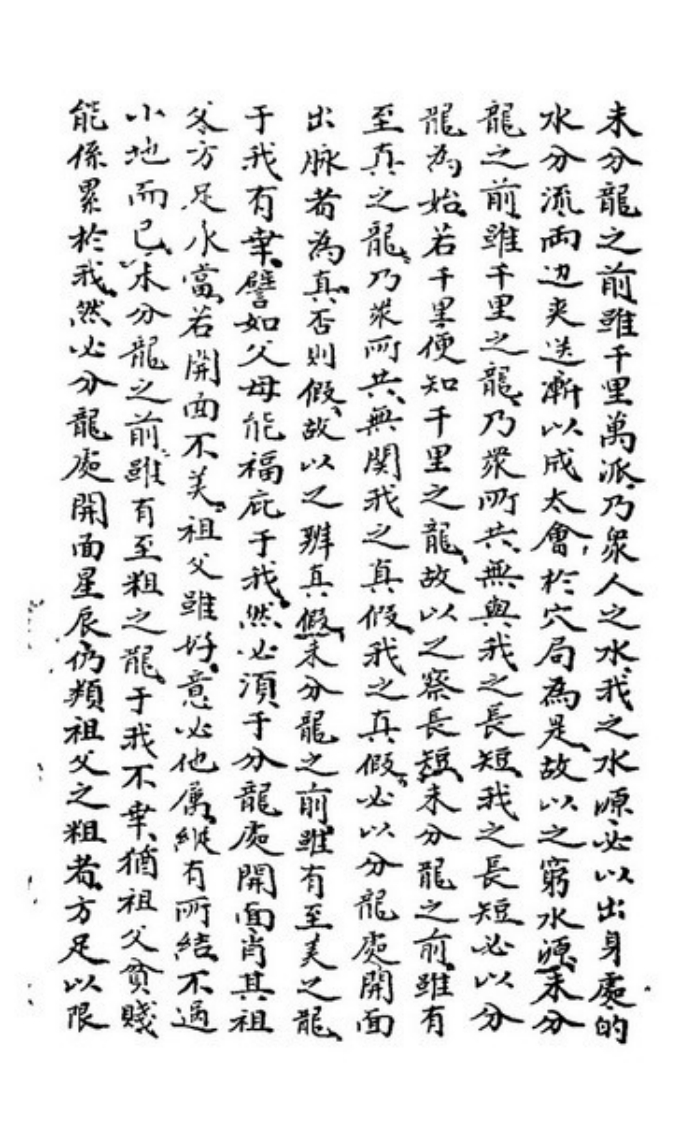 未分龍之前雖千里萬派乃衆人之水我之水源必以出身處的
水分流兩边夾送漸以成太會於穴局為是故以之窮水源未分
龍之前雖千里之龍乃衆所共無與我之長短我之長短必以分
龍為始若千里便知千里之龍故以之察長短未分龍之前雖有
至真之龍乃衆所共無関我之真假我之真假必以分龍處開面
出脉者為真否則假故以之辨真假未分龍之前雖有至美之龍
于我有幸譬如父母能福庇于我然必須于分龍處開面肖其祖
父方足水當若開面不美祖父雖好意必他属縱有所結不過
小地而已未分龍之前雖有至粗之龍于我不幸猶祖父貧賤
能係累於我然必分龍處開面星辰仍類祖父之粗者方足以限